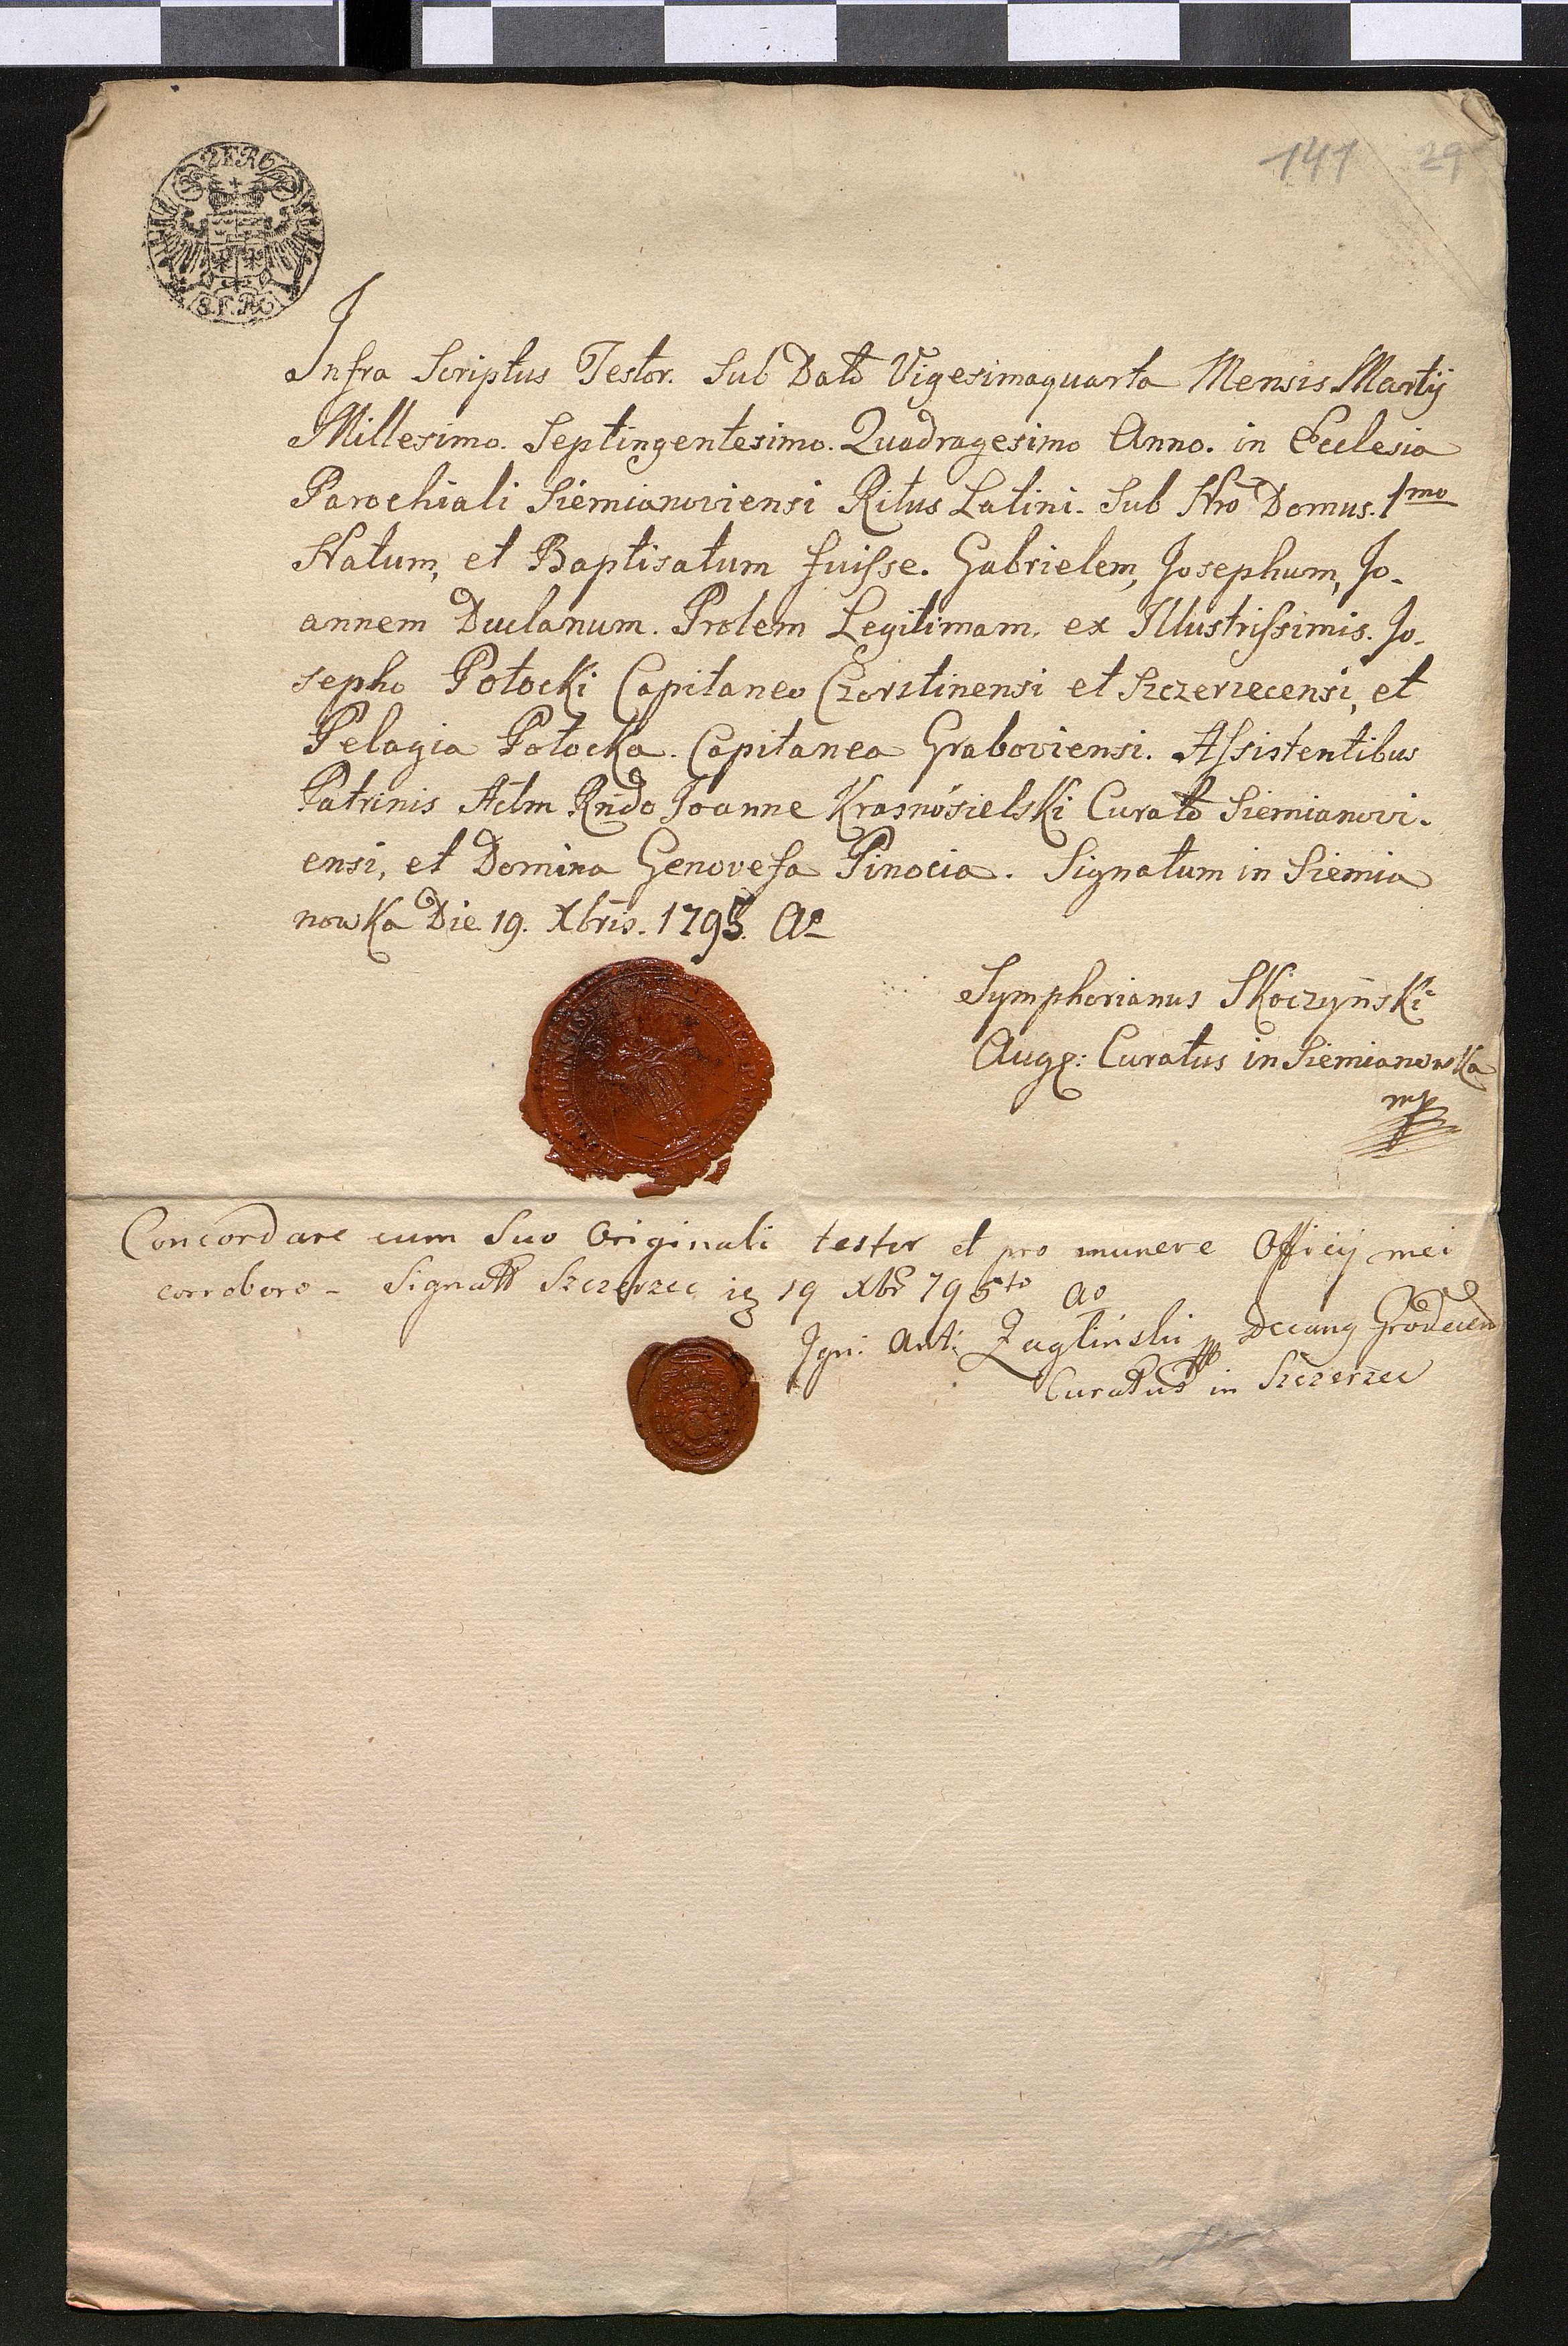 2ERG
S.F.RG
141 29
Infra Scriptus Testor. Sub Dato Vigesimaquarta Mensis Martij
Millesimo. Septingentesimo. Quadragesimo Anno. in Ecclesia
Parochiali Siemianoviensi Ritus Latini. Sub Nro Domus. 1mo
Natum, et Baptisatum fuisse. Gabrielem, Josephum, Jo-
annem Duclanum. Prolem Legitimam. ex Illustrissimis. Jo-
sepho Potocki Capitaneo Czorstinensi et Szczerzecensi, et
Pelagia Potocka. Capitanea Graboviensi. Assistentibus
Patrinis Adm Rndo Joanne Krasnosielski Curato Siemianovi-
ensi, et Domina Genovefa Pinocia. Signatum in Siemia
nowka Die 19. Xbris. 1795. Ao
Symphorianus Skoczyński
Curatus in Siemianowka
mp
Concordare cum Suo Originali testor et pro munere Officij mei
corroboro - Szczerzec 19 Xbr 795to ao
Ign: Ant:
Curatus in Szczerzec